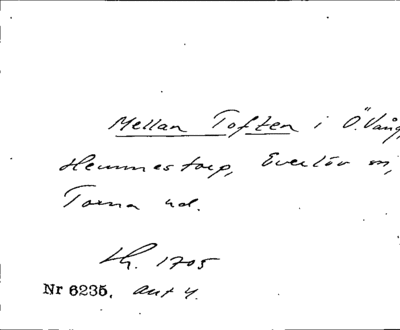 Mellan Toften i Ö. Vång,
Hemmestorp, Everlöv sn,
Torna hd.
Lh. 1705
Nr 6235. akt 4.